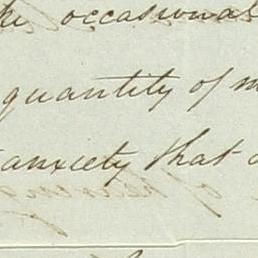 occasional
quantity of
anxiety that